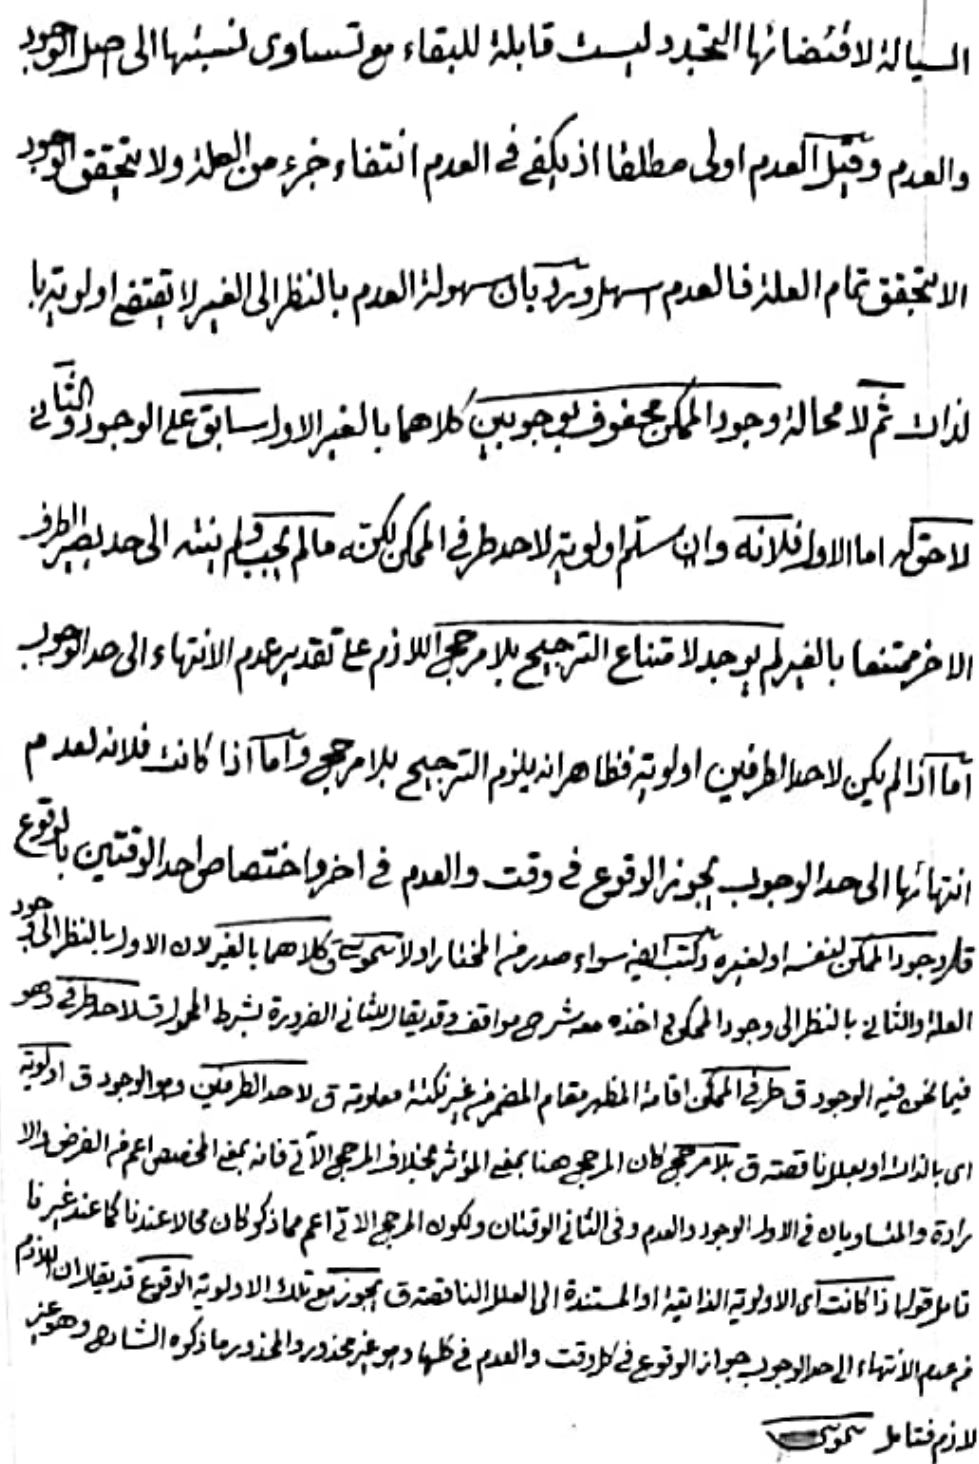 السيالة لاقتضائها التجدد ليست قابلة للبقاء مع تساوى نسبتها الى اصل الوجود
والعدم وقيل العدم اولى مطلقا اذ يكفى فى العدم انتفاء جزء من العلة ولا يتحقق الوجود
الا بتحقق تمام العلة فالعدم اسهل ورد بان سهولة العدم بالنظر الى الغير لا تقتضى اولويته با
لذات ثم لا محالة وجود الممكن محفوف بوجوبين كلاهما بالغير الاول سابق على الوجود والثانى
لاحق له اما الاول فلانه وان سلم اولويته لاحد طرفى الممكن لكنه مالم يجب ولم ينته الى حد يصير الطرف
الاخر ممتنعا بالغير لم يوجد لامتناع الترجيح بلا مرجح اللازم على تقدير عدم الانتهاء الى حد الوجوب
اما اذا لم يكن لاحد الطرفين اولوية فظاهر انه يلزم الترجيح بلا مرجح واما اذا كانت فلانه لعدم
انتهائها الى حد الوجوب يجوز الوقوع فى وقت والعدم فى اخر واختصاص احد الوقتين بالوقوع
قوله وجود الممكن لنفسه او لغيره وكتب ايضا سواء صدر من المختار اولا ق كلاهما بالغير لان الاول بالنظر الى وجود
العلة والثانى بالنظر الى وجود الممكن اخذه معه شرح مواقف وقد يقال للثانى الضرورة بشرط المحمول ق لاحد طرفى وهو
فيما نحن فيه الوجود ق طرفى الممكن اقامة المظهر مقام المضمر من غير نكتة معلومة ق لاحد الطرفين وهو الوجود ق اولوية
اى بالذات او بعلل ناقصة ق بلا مرجح كان المرجح هنا بمعنى المؤثر بخلاف المرجح الآتى فانه بمعنى المخصص اعم من الغرض والا
رادة والمتساويان فى الاول الوجود والعدم وفى الثانى الوقتان ولكون المرجح الاتى اعم مما ذكر كان محالا عندنا كما عند غيرنا
تامل قوله اذا كانت اى الاولوية الذاتية او المستندة الى العلل الناقصة ق يجوز مع تلك الاولوية الوقوع قد يقال ان اللازم
من عدم الانتهاء الى حد الوجوب جواز الوقوع فى كل وقت والعدم فى كلها وهو غير محذور والمحذور ما ذكره الشارح وهو غير
لازم فتامل